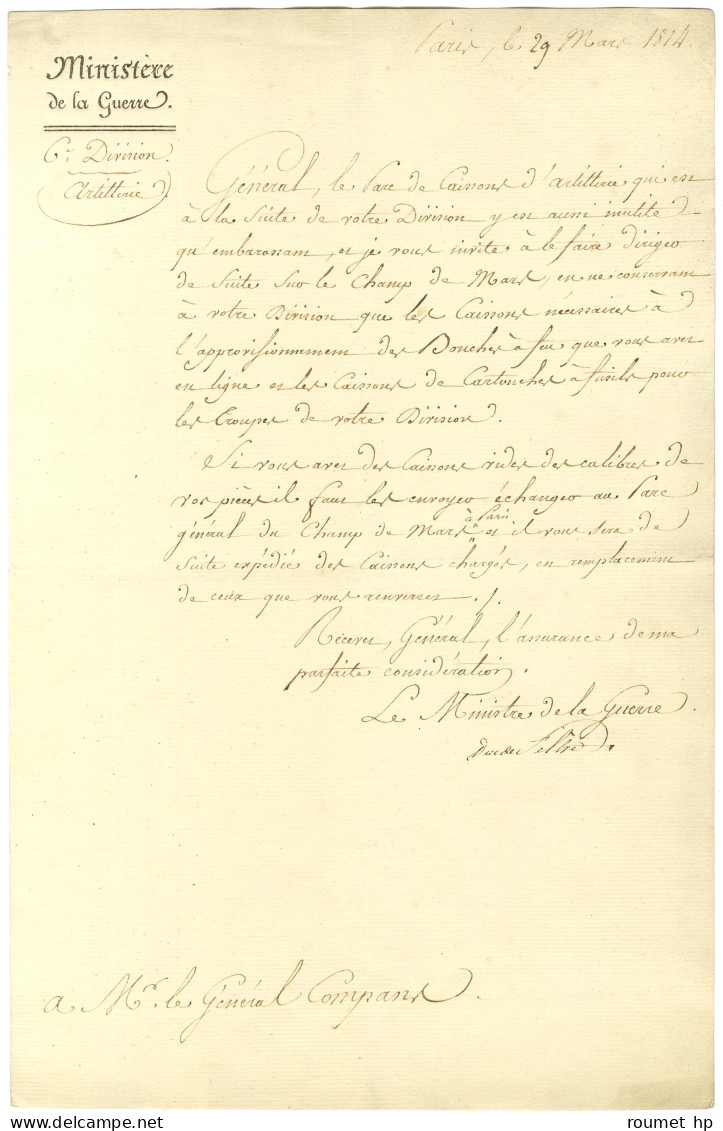 Paris, le 29 Mars 1814.
Ministère
de la Guerre.
6e. Division.
Artillerie.
Général, le Parc de Caissons d'artillerie qui est
à la Suite de votre Division y est aussi inutile
qu'embarassant, et je vous invite à le faire diriger
de Suite sur le Champ de Mars, en ne conservant
à votre Division que les Caissons nécessaires à
l'approvisionnement des Bouches à feu que vous avez
en ligne et les Caissons de Cartouches à fusils pour
les Troupes de votre Division.
Si vous avez des Caissons vides des calibres de
vos pièces il faut les envoyer échanger au Parc
général du Champ de Mars à Paris et il vous sera de
Suite expédié des Caissons chargés, en remplacement
de ceux que vous renverrez ./.
Recevez, Général, l'assurance de ma
parfaite considération.
Le Ministre de la Guerre
Duc de Feltre.
a Mr. le Général Compans.
roumet hp